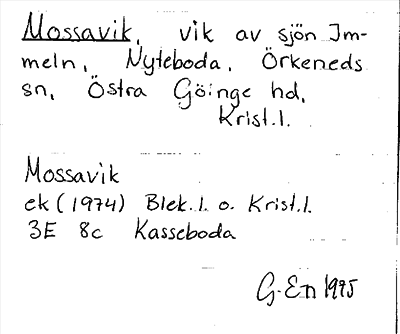 Mossavik, vik av sjön Im-
meln, Nyteboda, Örkeneds
sn, Östra Göinge hd,
Krist.l.
Mossavik
ek (1974) Blek.l. o. Krist.l.
3E 8c Kasseboda
G. En 1975